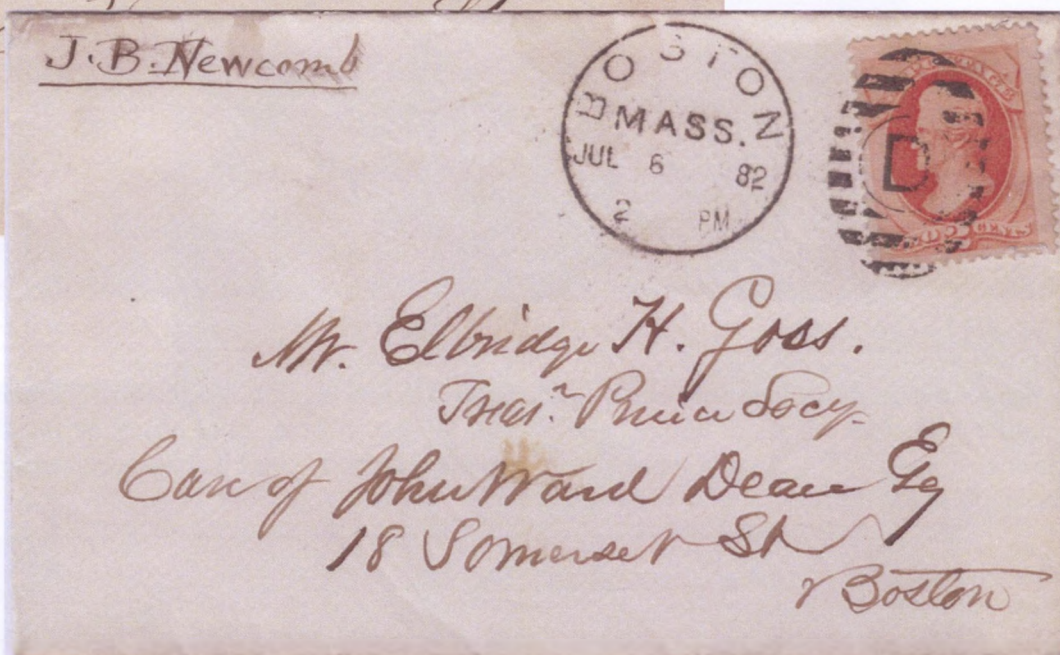 J. B. Newcomb
BOSTON
MASS.
JUL 6 82
2 PM
D
POSTAGE
TWO 2 CENTS
Mr. Elbridge H. Goss.
Treasr. Prince Socy.
Care of John Ward Dean Esq
18 Somerset St
Boston